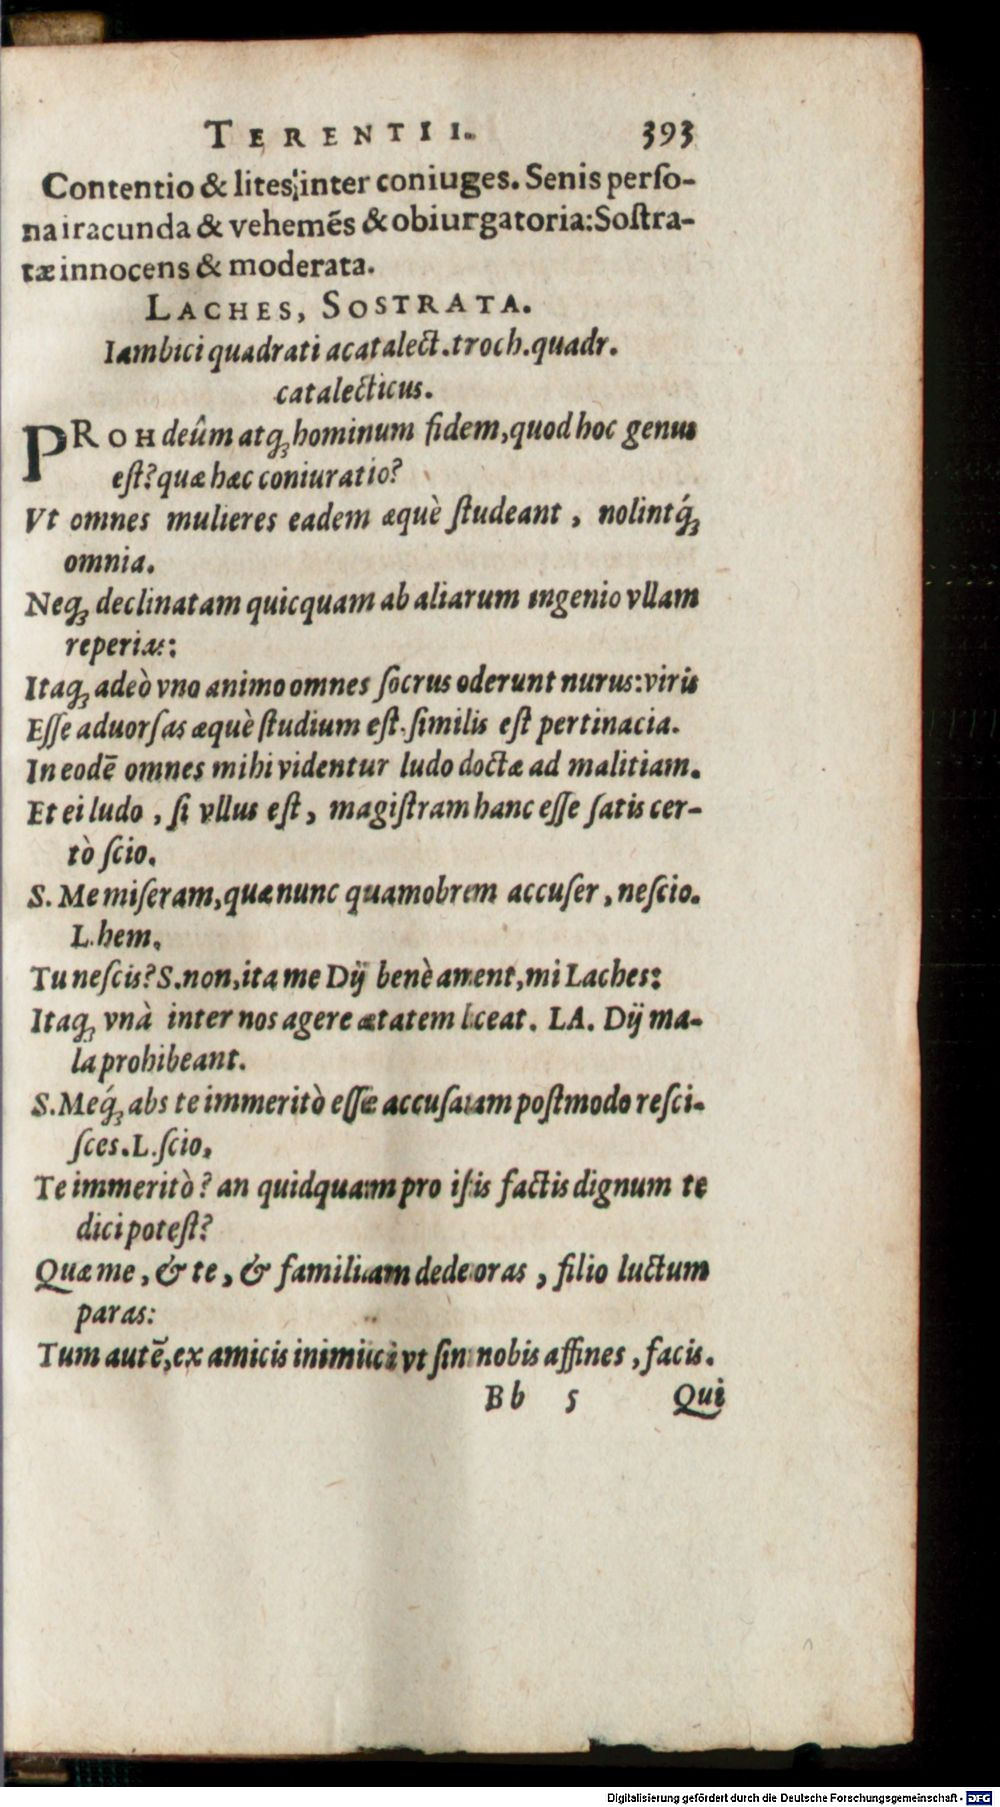 TERENTII. 393
Contentio & lites inter coniuges. Senis perſo-
na iracunda & vehemẽs & obiurgatoria: Soſtra-
tæ innocens & moderata.
LACHES, SOSTRATA.
Iambici quadrati acatalect. troch. quadr.
catalecticus.
PROH deûm atq́ꝫ hominum fidem, quod hoc genus
eſt? quæ hæc coniuratio?
Vt omnes mulieres eadem æquè ſtudeant, nolintq́ꝫ
omnia.
Neqꝫ declinatam quicquam ab aliarum ingenio vllam
reperias:
Itaqꝫ adeò vno animo omnes ſocrus oderunt nurus: viris
Eſſe aduorſas æquè ſtudium eſt. ſimilis eſt pertinacia.
In eodẽ omnes mihi videntur ludo doctæ ad malitiam.
Et ei ludo, ſi vllus eſt, magiſtram hanc eſſe ſatis cer-
tò ſcio.
S. Me miſeram, quæ nunc quamobrem accuſer, neſcio.
L. hem.
Tu neſcis? S. non, ita me Dij benè ament, mi Laches:
Itaqꝫ vnà inter nos agere ætatem liceat. LA. Dij ma-
la prohibeant.
S. Meq́ꝫ abs te immeritò eſſe accuſatam poſtmodo reſci-
ſces. L. ſcio.
Te immeritò? an quidquam pro iſtis factis dignum te
dici poteſt?
Quæ me, & te, & familiam dedecoras, filio luctum
paras:
Tum autẽ, ex amicis inimici vt ſint nobis affines, facis.
Bb 5 Qui
Digitalisierung gefördert durch die Deutsche Forschungsgemeinschaft - DFG